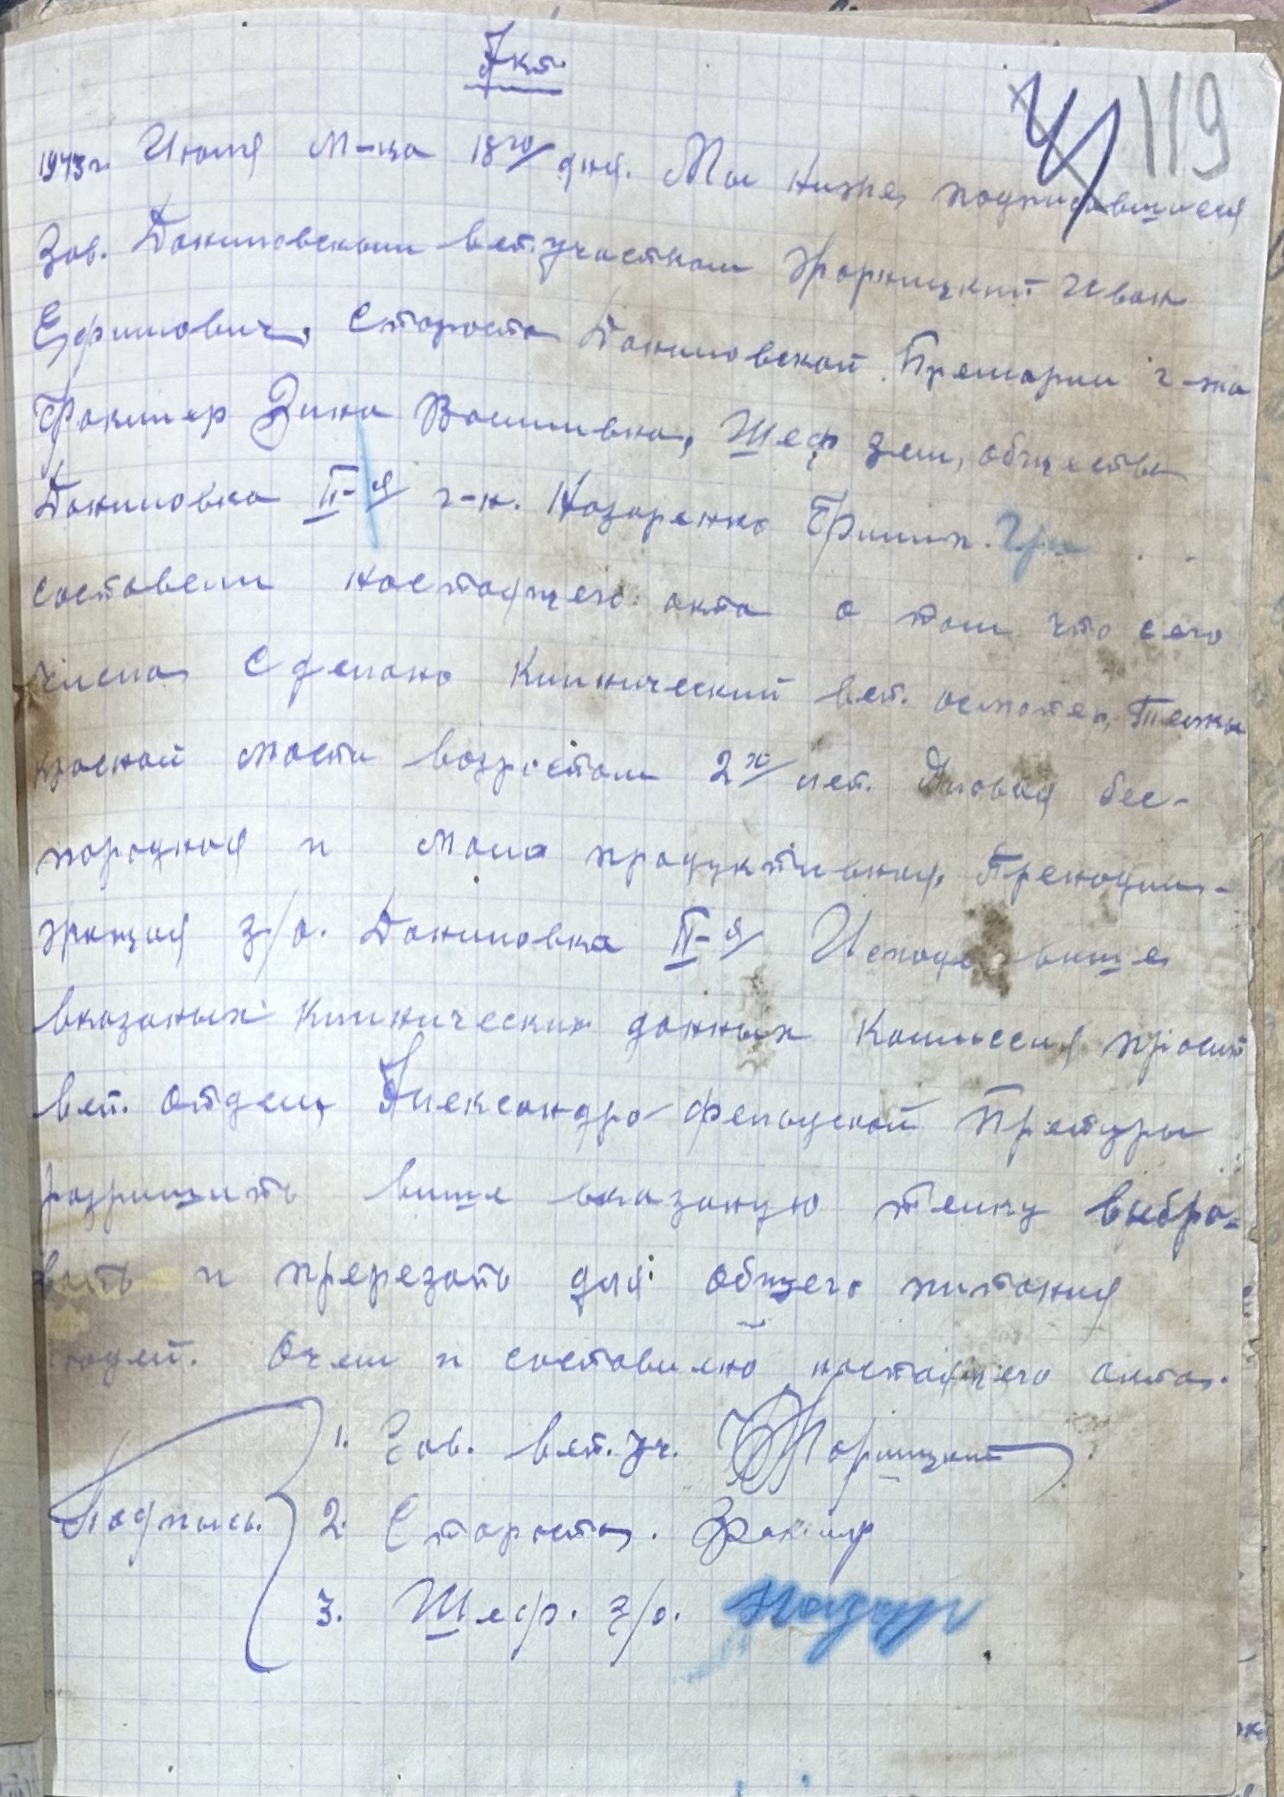 Акт
119
1943 г. Июля м-ца 18го/ дня. Мы ниже, подписавшиеся
Зав. Даниловским вет. участком Иван
Ефимович, Староста Даниловской. Премарии г-жа
Зина Васильевна, Шеф зем, общества
Даниловка II-я/ г-н. Назаренко Филип.
составели настоящего акта о том что сего
числа, сделано Клинический вет. осмотер, Телки
красной масти возростом 2х/ лет. Яловая бес-
породная и мало продуктивная, Пренадли-
жращая з/о. Даниловка II-я/ више
вказаных клинических данных Комиссия просит
вет. отдел, Александро-фельдской Претуры
разришить више вказаную телку выбра-
вать и пререзать для общего питания
людей. Очем и составлено настоящего акта.
Подпись.
1. Зав. вет. уч.
2. Староста.
3. Шеф. з/о. Назар